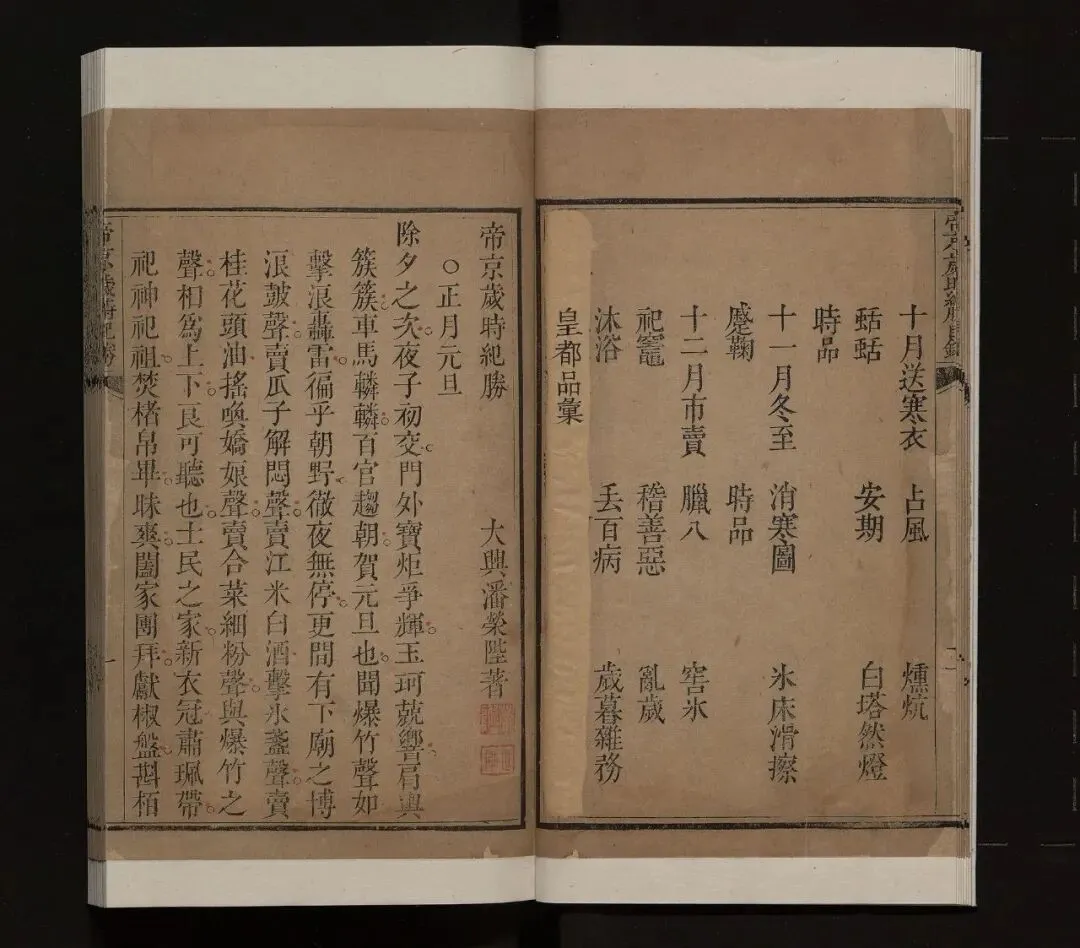 帝京歲時紀勝目錄
十月送寒衣　占風　燻炕
蛞蛞　安期　白塔然燈
時品
十一月冬至　消寒圖　氷床滑擦
蹙鞠　時品
十二月市賣　臘八　窖氷
祀竈　稽善惡　亂歲
沐浴　丟百病　歲暮雜務
皇都品彙
帝京歲時紀勝　大興潘榮陛著
○正月元旦
除夕之次夜子初交門外寶炬爭輝玉珂兢響肩輿
簇簇車馬轔轔百官趨朝賀元旦也聞爆竹聲如
擊浪轟雷徧乎朝野徹夜無停更間有下廟之博
浪皷聲賣瓜子解悶聲賣江米白酒擊氷盞聲賣
桂花頭油搖喚嬌娘聲賣合菜細粉聲與爆竹之
聲相爲上下良可聽也士民之家新衣冠肅珮帶
祀神祀祖焚楮帛畢昧爽闔家團拜獻椒盤斟栢
帝京歲時紀勝　一